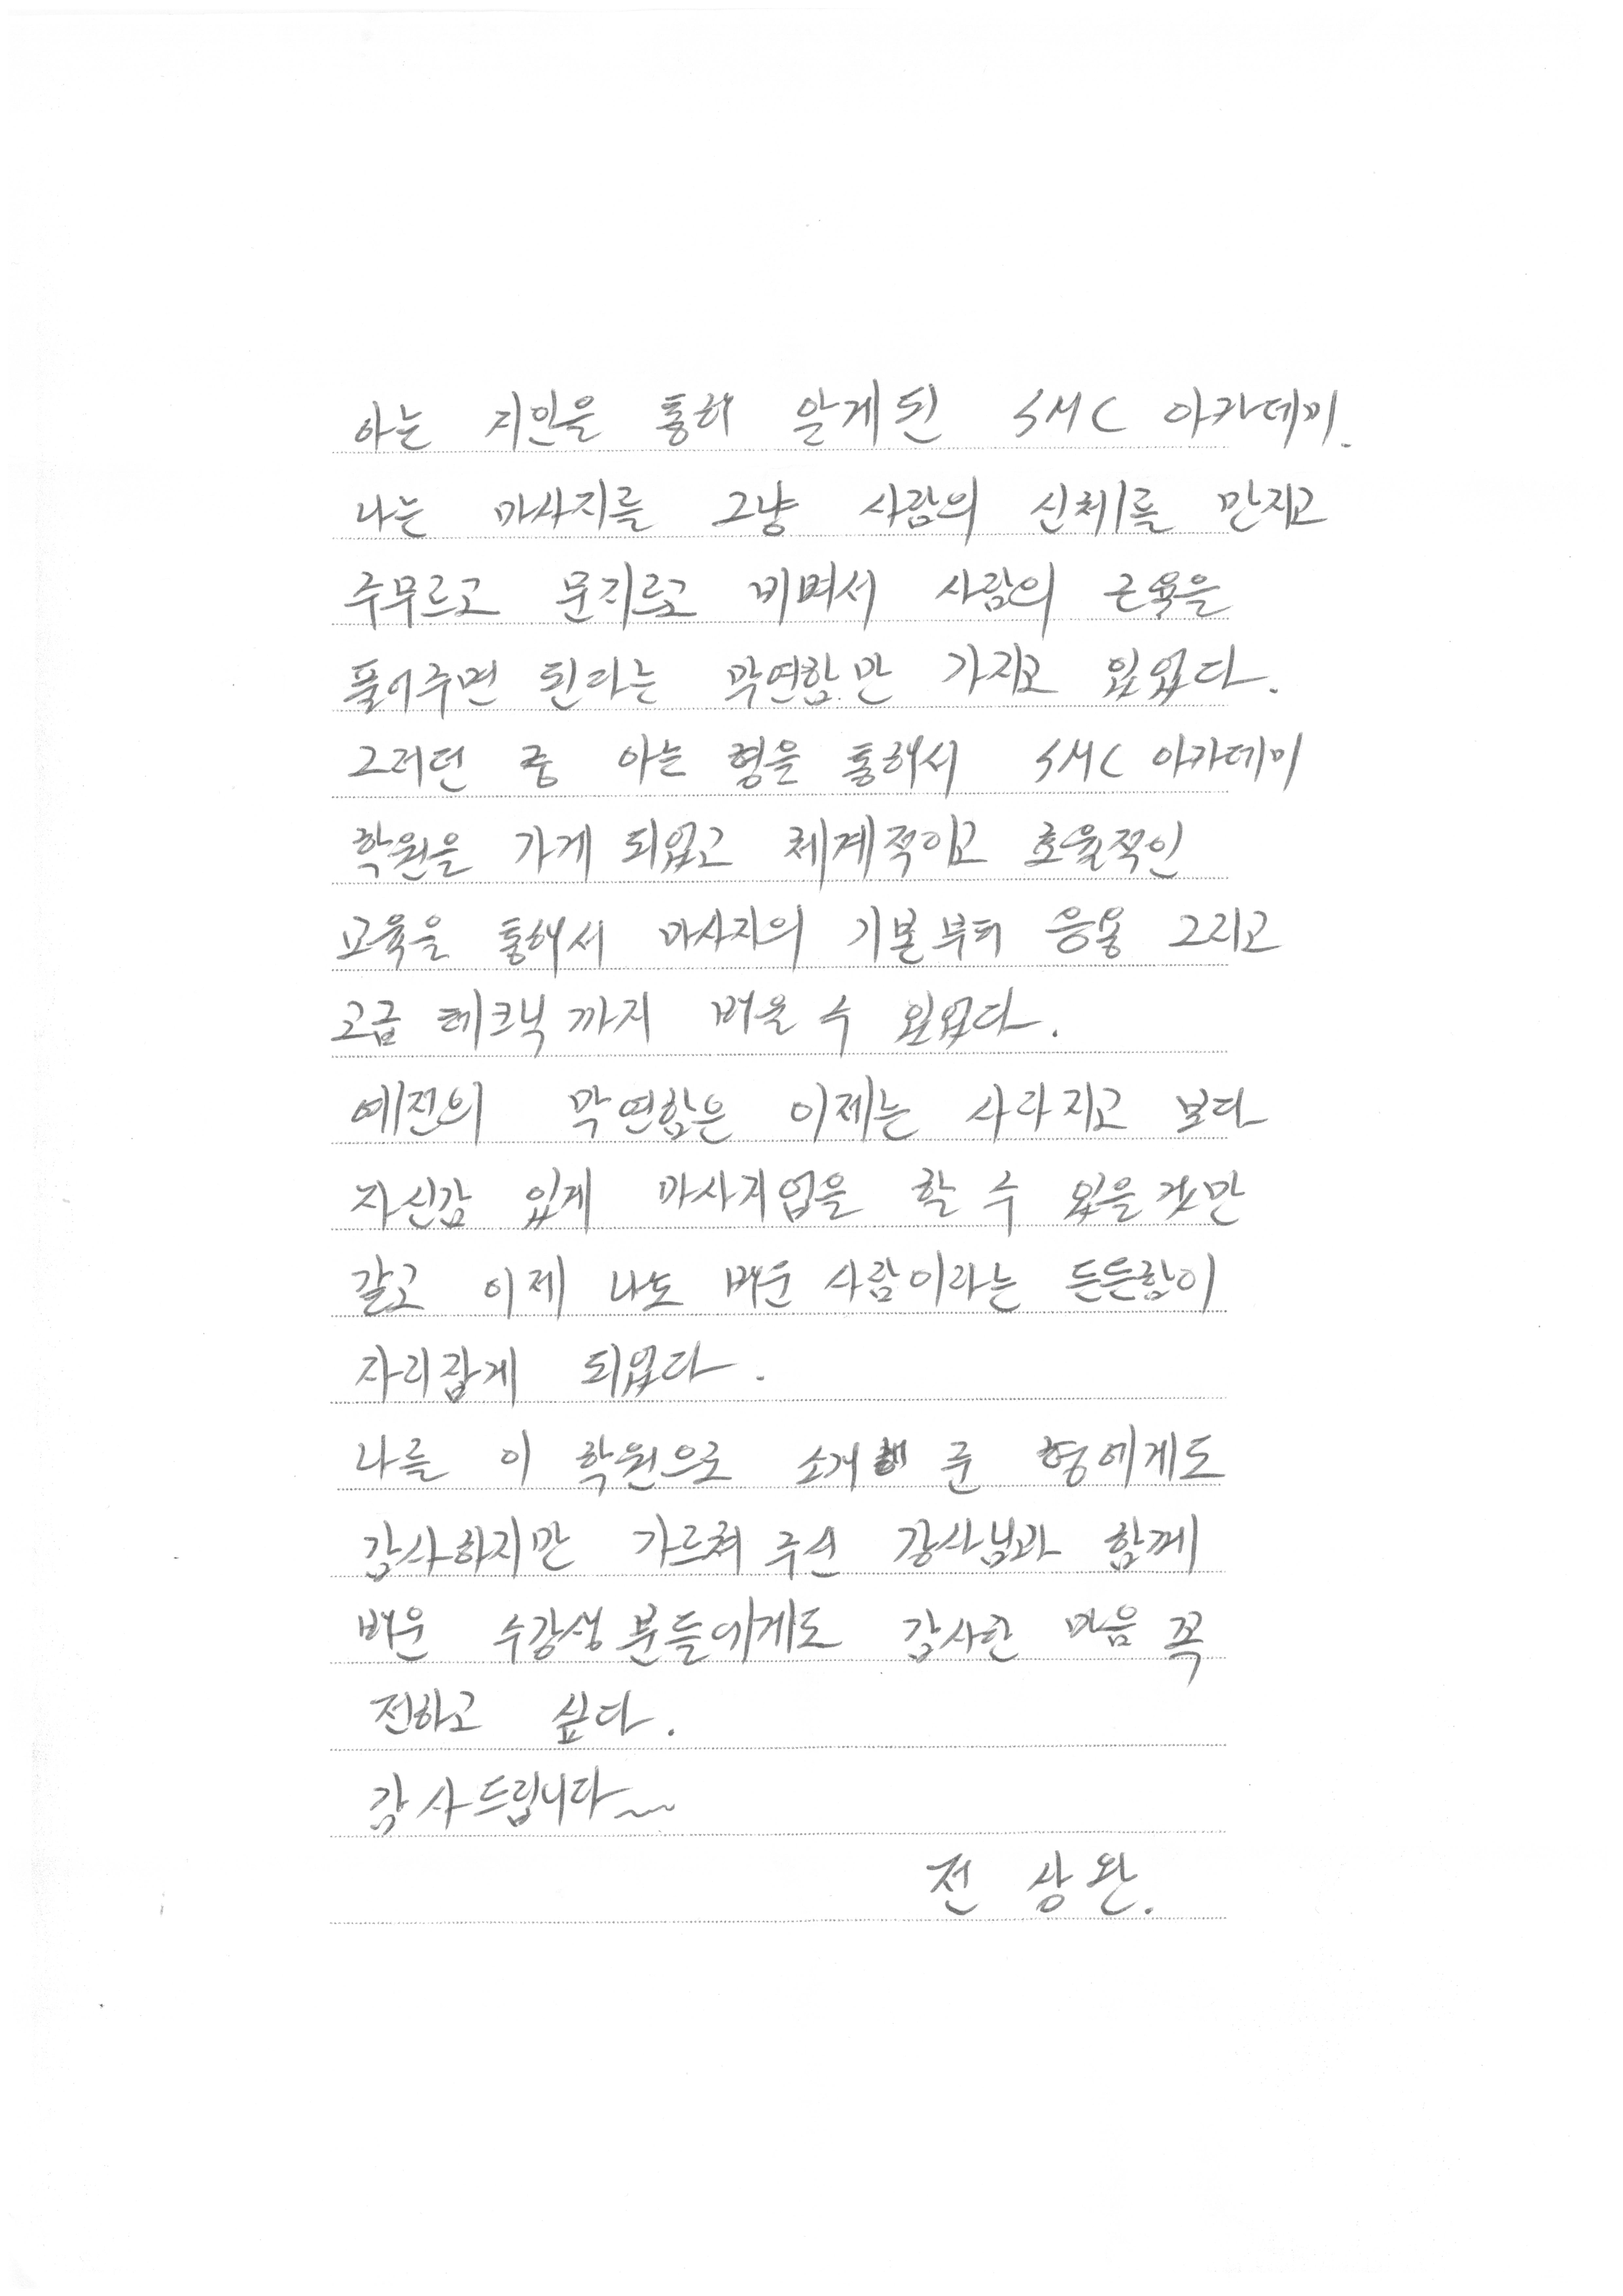 아는 지인을 통해 알게된 SMC 아카데미.
나는 마사지를 그냥 사람의 신체를 만지고
주무르고 문지르고 비벼서 사람의 근육을
풀어주면 된다는 막연함만 가지고 있었다.
그러던 중 아는 형을 통해서 SMC 아카데미
학원을 가게 되었고 체계적이고 효율적인
교육을 통해서 마사지의 기본부터 응용 그리고
고급 테크닉까지 배울 수 있었다.
예전의 막연함은 이제는 사라지고 보다
자신감 있게 마사지업을 할 수 있을것만
같고 이제 나도 배운 사람이라는 든든함이
자리잡게 되었다.
나를 이 학원으로 소개해 준 형에게도
감사하지만 가르쳐 주신 강사님과 함께
배운 수강생분들에게도 감사한 마음 꼭
전하고 싶다.
감사드립니다~~
전 상완.